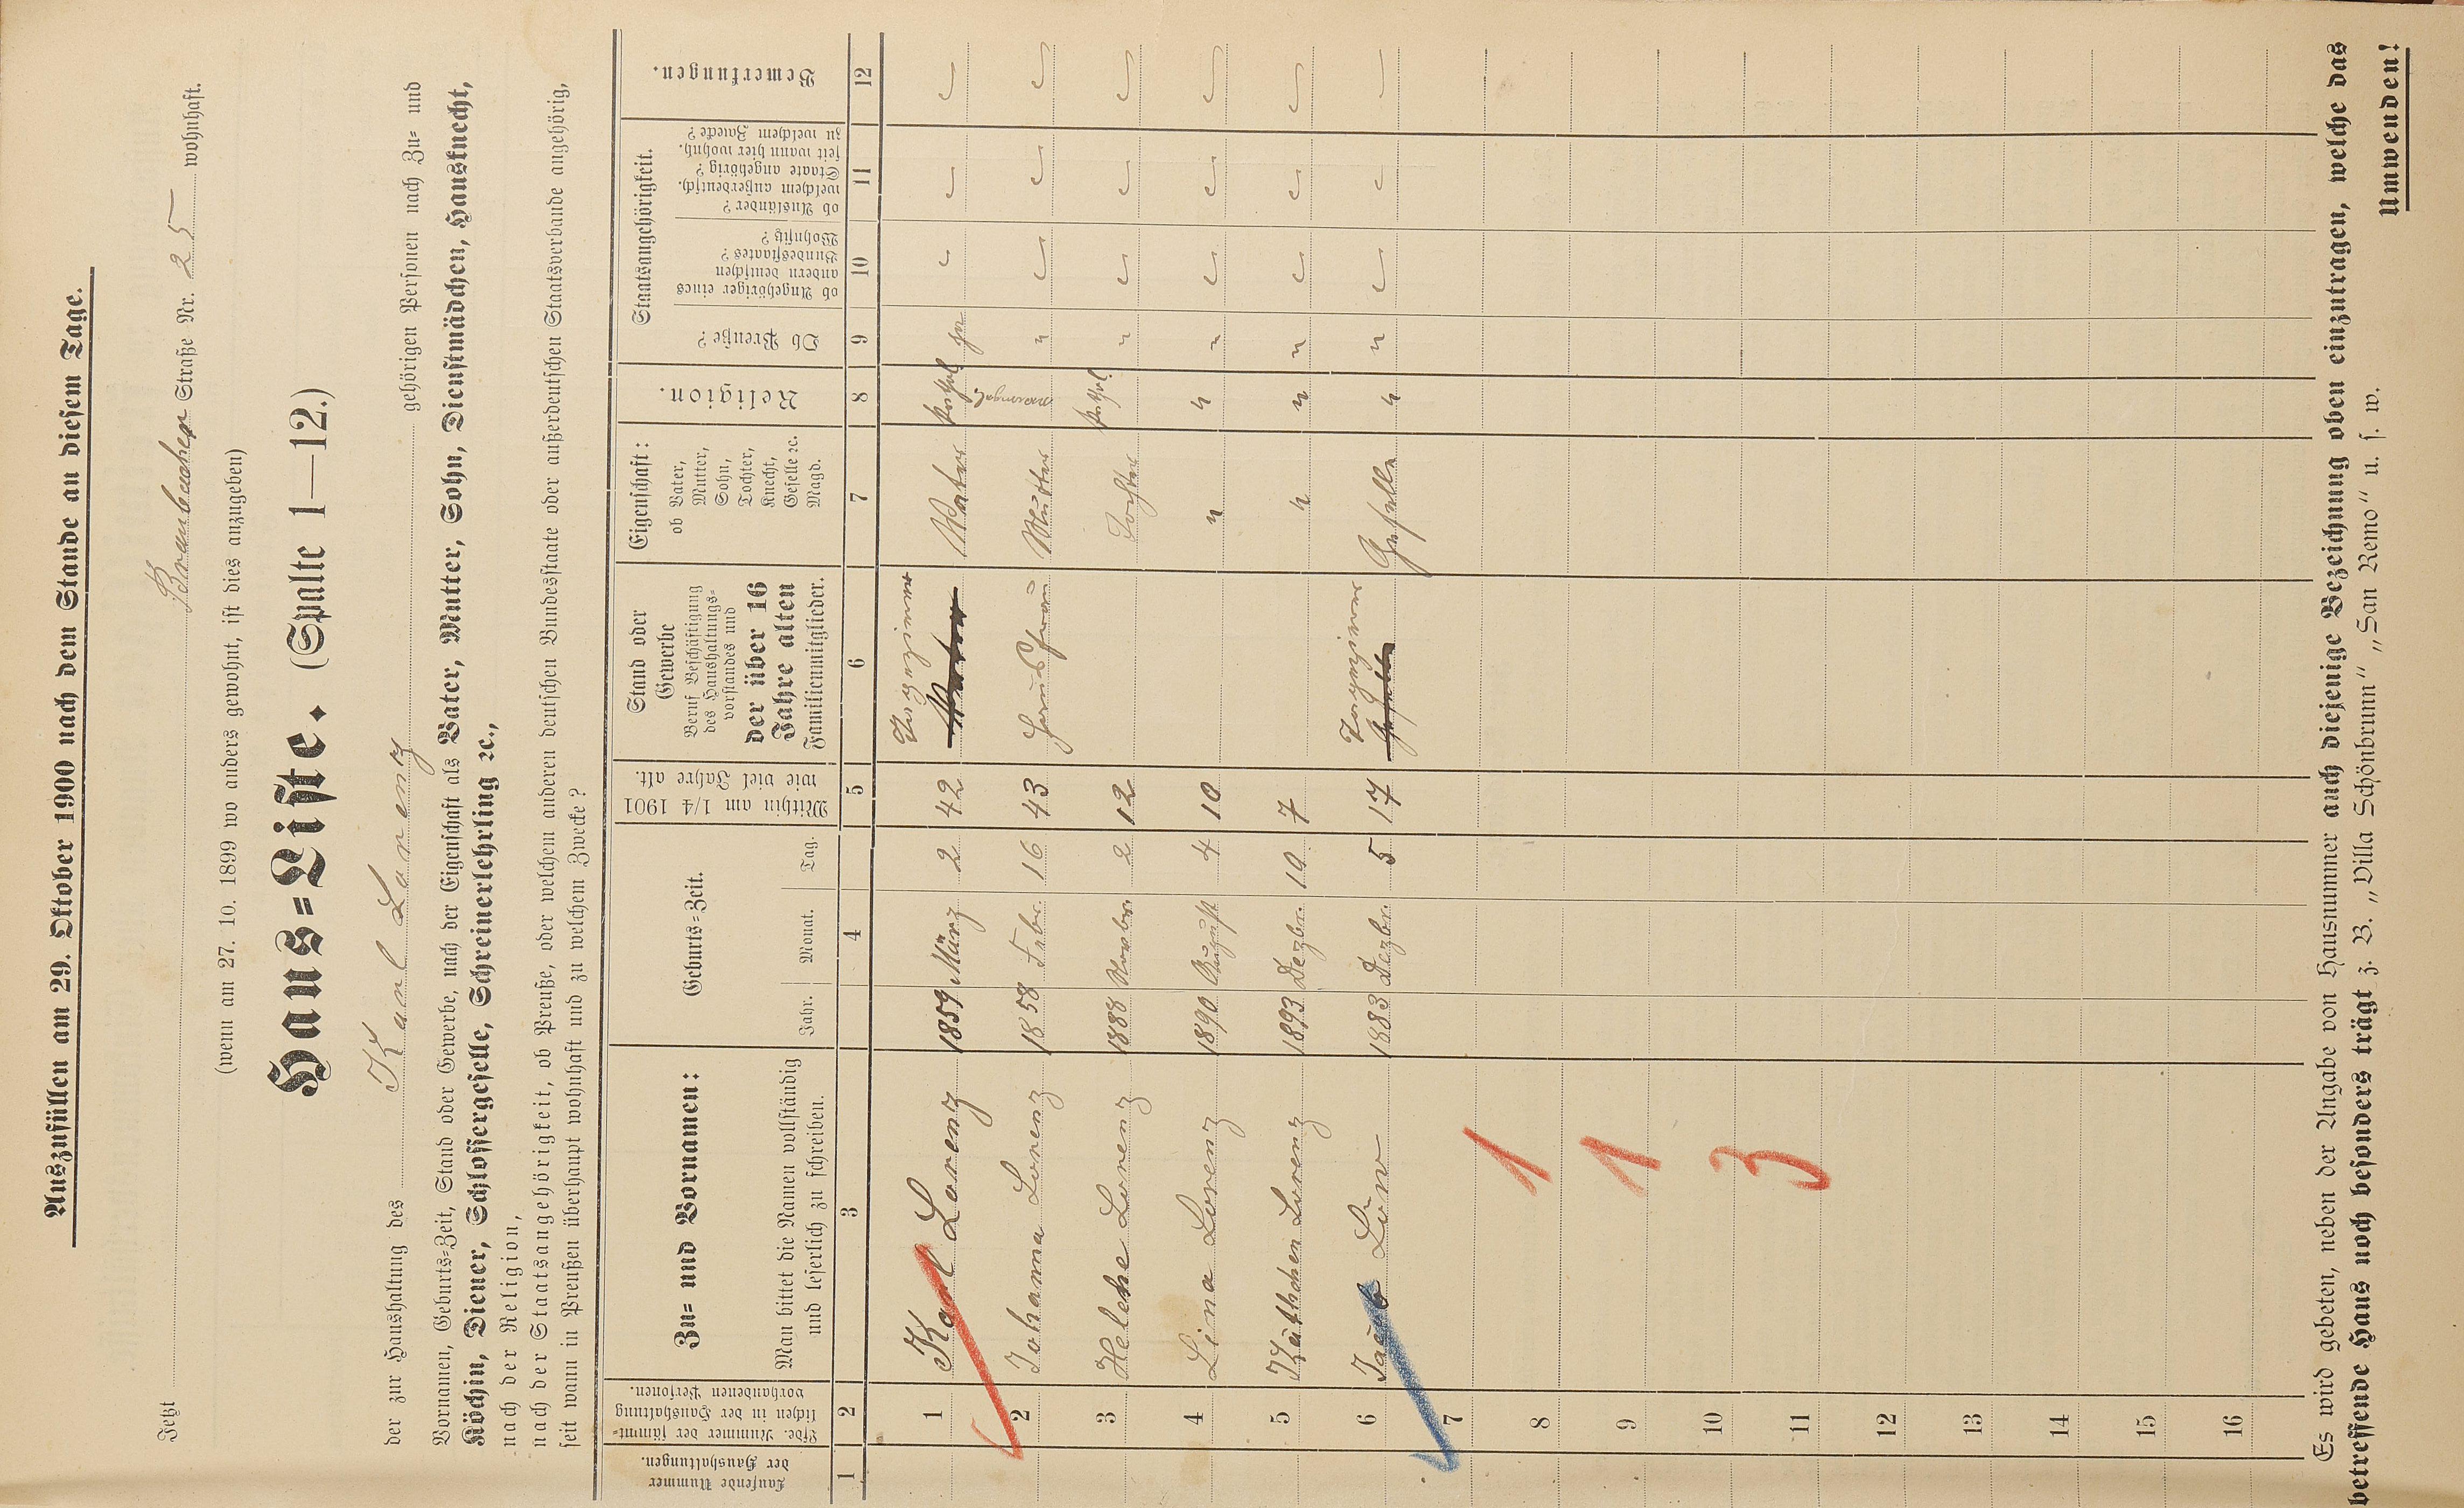 Auszufüllen am 29. Oktober 1900 nach dem Stande an diesem Tage.
Jetzt Straße Nr. 25 wohnhaft.
(wenn am 27. 10. 1899 wo anders gewohnt, ist dies anzugeben)
Haus=Liste. (Spalte 1—12.)
der zur Haushaltung des Karl Lorenz gehörigen Personen nach Zu= und
Vornamen, Geburts=Zeit, Stand oder Gewerbe, nach der Eigenschaft als Vater, Mutter, Sohn, Dienstmädchen, Hausknecht,
Köchin, Diener, Schlossergeselle, Schreinerlehrling ꝛc.,
nach der Religion,
nach der Staatsangehörigkeit, ob Preuße, oder welchem anderen deutschen Bundesstaate oder außerdeutschen Staatsverbande angehörig,
seit wann in Preußen überhaupt wohnhaft und zu welchem Zwecke?
Laufende Nummer der Haushaltungen.
Lfde. Nummer der sämmt=lichen in der Haushaltung vorhandenen Personen.
Zu= und Vornamen:
Man bittet die Namen vollständig
und leserlich zu schreiben.
Geburts=Zeit.
Jahr. Monat. Tag.
Mithin am 1/4 1901
wie viel Jahre alt.
Stand oder
Gewerbe
Beruf Beschäftigung
des Haushaltungs=
vorstandes und
der über 16
Jahre alten
Familienmitglieder.
Eigenschaft:
ob Vater,
Mutter,
Sohn,
Tochter,
Knecht,
Geselle ꝛc.
Magd.
Religion.
Staatsangehörigkeit.
Ob Preuße?
ob Angehöriger eines
andern deutschen
Bundesstaates?
Wohnsitz?
ob Ausländer?
welchem außerdeutsch.
Staate angehörig?
seit wann hier wohnh.
zu welchem Zwecke?
Bemerkungen.
1 2 3 4 5 6 7 8 9 10 11 12
1 Karl Lorenz 1859 März 2 42 Tapezierer Vater Kathol ja
2 Johanna Lorenz 1858 Febr. 16 43 Hausfrau Mutter "
3 Helene Lorenz 1888 Novbr. 2 12 Tochter Kathol "
4 Lina Lorenz 1890 August 4 10 " " "
5 Käthchen Lorenz 1893 Dezbr. 10 7 " " "
6 Jacob Löw 1883 Dezbr. 5 17 Tapezierer Geselle " "
7
8
9
10
11
12
13
14
15
16
1
1
3
Es wird gebeten, neben der Angabe von Hausnummer auch diejenige Bezeichnung oben einzutragen, welche das
betreffende Haus noch besonders trägt z. B. „Villa Schönbrunn" „San Remo" u. s. w.
Umwenden!